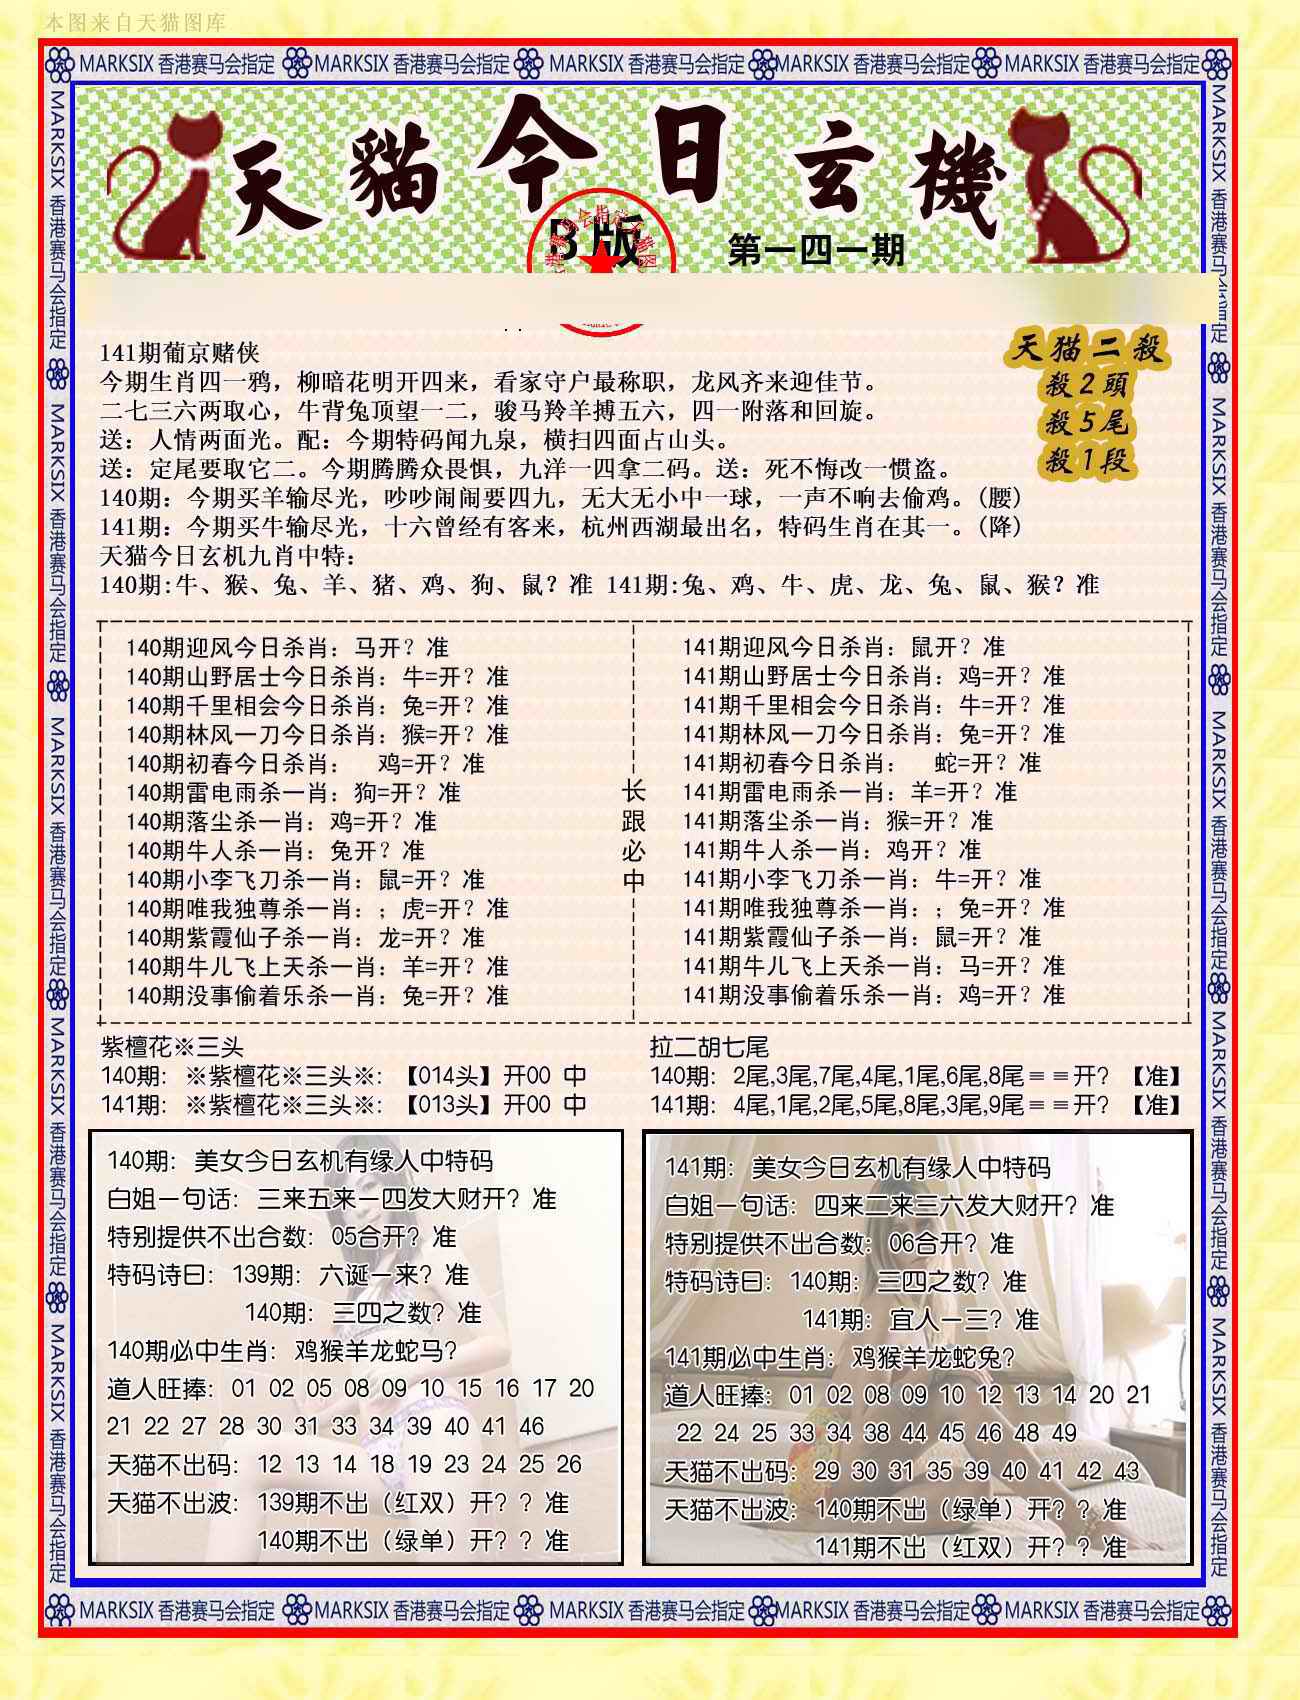 本图来自天猫图库
MARKSIX 香港赛马会指定 MARKSIX 香港赛马会指定 MARKSIX 香港赛马会指定 MARKSIX 香港赛马会指定 MARKSIX 香港赛马会指定
天貓今日玄機
B版
第一四一期
天猫二殺
殺2頭
殺5尾
殺1段
141期葡京赌侠
今期生肖四一鸦，柳暗花明开四来，看家守户最称职，龙风齐来迎佳节。
二七三六两取心，牛背兔顶望一二，骏马羚羊搏五六，四一附落和回旋。
送：人情两面光。配：今期特码闻九泉，横扫四面占山头。
送：定尾要取它二。今期腾腾众畏惧，九洋一四拿二码。送：死不悔改一惯盗。
140期：今期买羊输尽光，吵吵闹闹要四九，无大无小中一球，一声不响去偷鸡。(腰)
141期：今期买牛输尽光，十六曾经有客来，杭州西湖最出名，特码生肖在其一。(降)
天猫今日玄机九肖中特：
140期:牛、猴、兔、羊、猪、鸡、狗、鼠？准 141期:兔、鸡、牛、虎、龙、兔、鼠、猴？准
140期迎风今日杀肖：马开？准
140期山野居士今日杀肖：牛=开？准
140期千里相会今日杀肖：兔=开？准
140期林风一刀今日杀肖：猴=开？准
140期初春今日杀肖：　鸡=开？准
140期雷电雨杀一肖：狗=开？准
140期落尘杀一肖：鸡=开？准
140期牛人杀一肖：兔开？准
140期小李飞刀杀一肖：鼠=开？准
140期唯我独尊杀一肖：；虎=开？准
140期紫霞仙子杀一肖：龙=开？准
140期牛儿飞上天杀一肖：羊=开？准
140期没事偷着乐杀一肖：兔=开？准
长
跟
必
中
141期迎风今日杀肖：鼠开？准
141期山野居士今日杀肖：鸡=开？准
141期千里相会今日杀肖：牛=开？准
141期林风一刀今日杀肖：兔=开？准
141期初春今日杀肖：　蛇=开？准
141期雷电雨杀一肖：羊=开？准
141期落尘杀一肖：猴=开？准
141期牛人杀一肖：鸡开？准
141期小李飞刀杀一肖：牛=开？准
141期唯我独尊杀一肖：；兔=开？准
141期紫霞仙子杀一肖：鼠=开？准
141期牛儿飞上天杀一肖：马=开？准
141期没事偷着乐杀一肖：鸡=开？准
紫檀花※三头
140期：※紫檀花※三头※：【014头】开00 中
141期：※紫檀花※三头※：【013头】开00 中
拉二胡七尾
140期：2尾,3尾,7尾,4尾,1尾,6尾,8尾＝＝开？【准】
141期：4尾,1尾,2尾,5尾,8尾,3尾,9尾＝＝开？【准】
140期：美女今日玄机有缘人中特码
白姐一句话：三来五来一四发大财开？准
特别提供不出合数：05合开？准
特码诗曰：139期：六诞一来？准
140期：三四之数？准
140期必中生肖：鸡猴羊龙蛇马？
道人旺捧：01 02 05 08 09 10 15 16 17 20
21 22 27 28 30 31 33 34 39 40 41 46
天猫不出码：12 13 14 18 19 23 24 25 26
天猫不出波：139期不出（红双）开？？准
140期不出（绿单）开？？准
141期：美女今日玄机有缘人中特码
白姐一句话：四来二来三六发大财开？准
特别提供不出合数：06合开？准
特码诗曰：140期：三四之数？准
141期：宜人一三？准
141期必中生肖：鸡猴羊龙蛇兔？
道人旺捧：01 02 08 09 10 12 13 14 20 21
22 24 25 33 34 38 44 45 46 48 49
天猫不出码：29 30 31 35 39 40 41 42 43
天猫不出波：140期不出（绿单）开？？准
141期不出（红双）开？？准
MARKSIX 香港赛马会指定 MARKSIX 香港赛马会指定 MARKSIX 香港赛马会指定 MARKSIX 香港赛马会指定 MARKSIX 香港赛马会指定
MARKSIX 香港赛马会指定 MARKSIX 香港赛马会指定 MARKSIX 香港赛马会指定 MARKSIX 香港赛马会指定 MARKSIX 香港赛马会指定
MARKSIX 香港赛马会指定 MARKSIX 香港赛马会指定 MARKSIX 香港赛马会指定 MARKSIX 香港赛马会指定 MARKSIX 香港赛马会指定